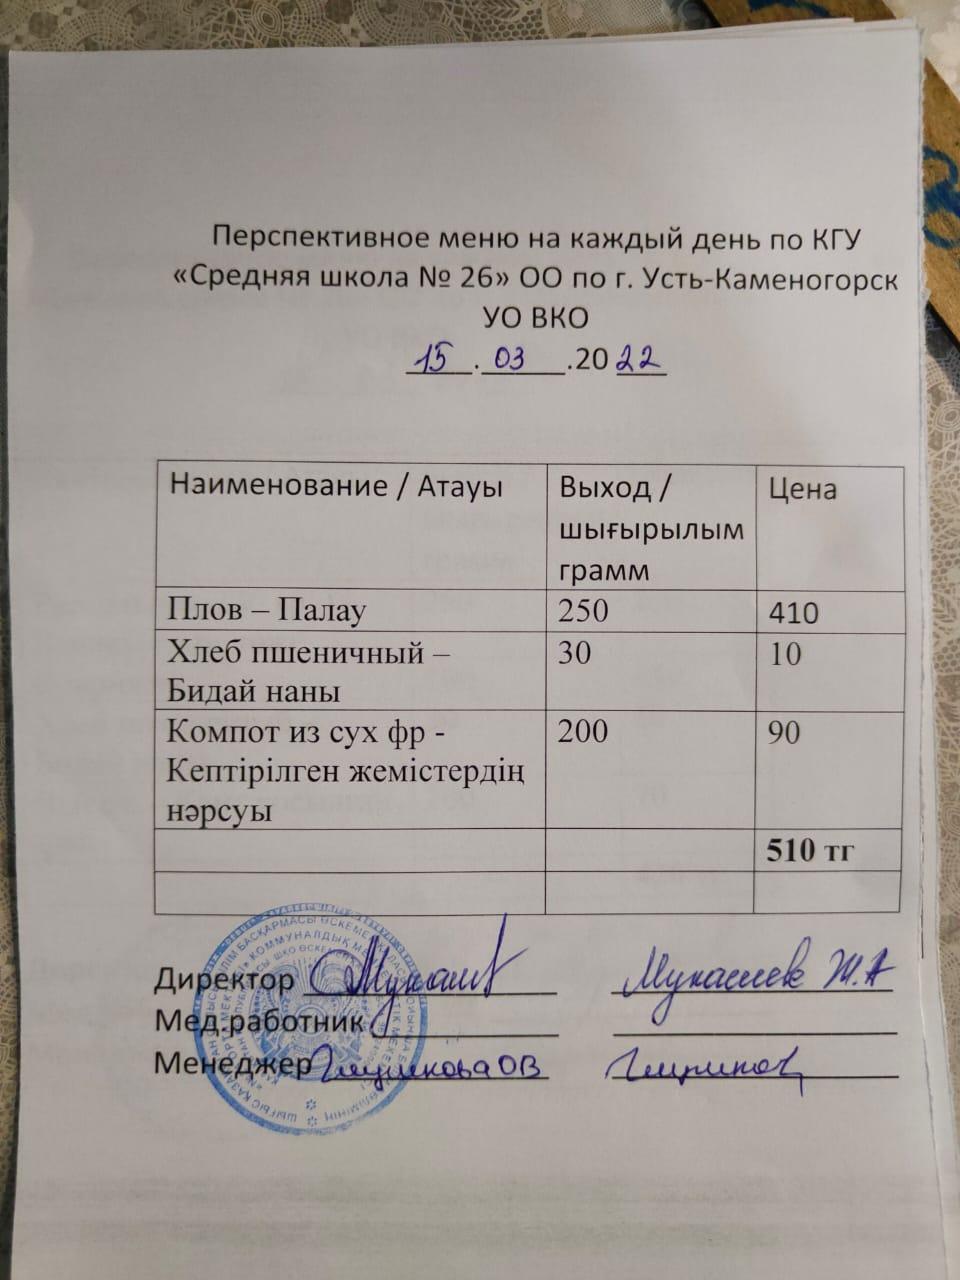 Перспективное меню на каждый день по КГУ
«Средняя школа № 26» ОО по г. Усть-Каменогорск
УО ВКО
15.03.2022
Наименование / Атауы
Выход /
шығырылым
грамм
Цена
Плов – Палау 250 410
Хлеб пшеничный – 30 10
Бидай наны
Компот из сух фр - 200 90
Кептірілген жемістердің
нәрсуы
510 тг
Директор Мукашев Ж.А
Мед.работник
Менеджер